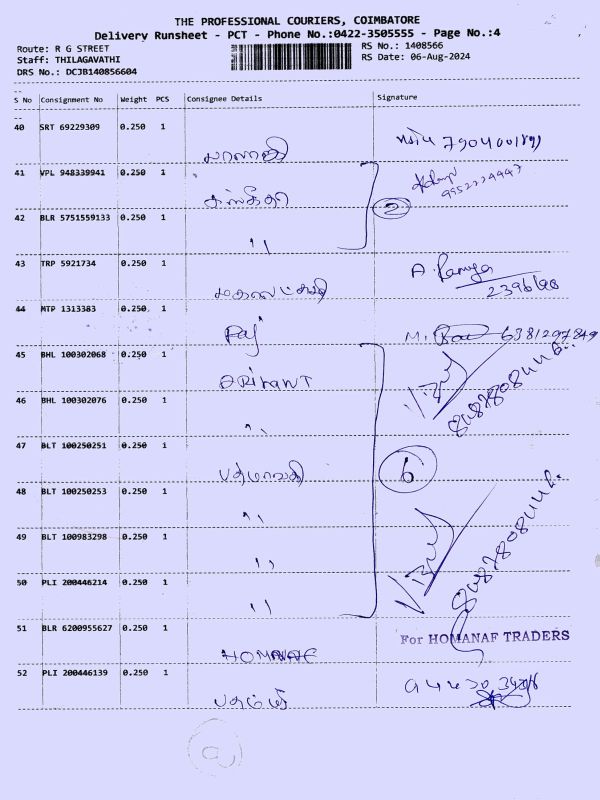 THE PROFESSIONAL COURIERS, COIMBATORE
Delivery Runsheet - PCT - Phone No.:0422-3505555 - Page No.:4
Route: R G STREET
RS No.: 1408566
Staff: THILAGAVATHI
RS Date: 06-Aug-2024
DRS No.: DCJB140856604
S No Consignment No Weight PCS Consignee Details Signature
40 SRT 69229309 0.250 1
41 VPL 948339941 0.250 1
2
42 BLR 5751559133 0.250 1
"
43 TRP 5921734 0.250 1 A. Ramya
44 MTP 1313383 0.250 1
Raj M. 6381297849
45 BHL 100302068 0.250 1
ARIHANT
46 BHL 100302076 0.250 1
"
47 BLT 100250251 0.250 1
பத்மாவதி 6
48 BLT 100250253 0.250 1
"
49 BLT 100983298 0.250 1
"
50 PLI 200446214 0.250 1
"
51 BLR 6200955627 0.250 1
For HOMANAF TRADERS
HOMANAF
52 PLI 200446139 0.250 1